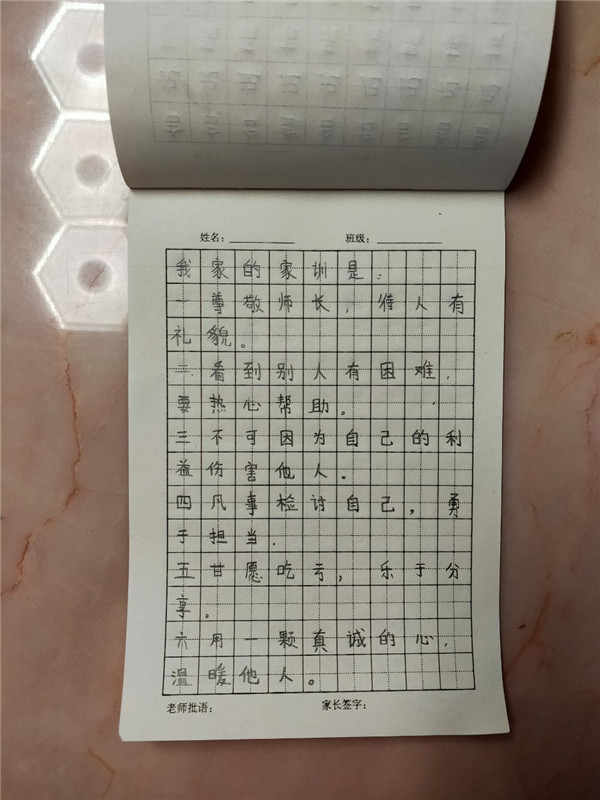 姓名：________ 班级：________
我家的家训是：
一尊敬师长，待人有
礼貌。
二看到别人有困难，
要热心帮助。
三不可因为自己的利
益伤害他人。
四凡事检讨自己，勇
于担当。
五甘愿吃亏，乐于分
享。
六用一颗真诚的心，
温暖他人。
老师批语： 家长签字：